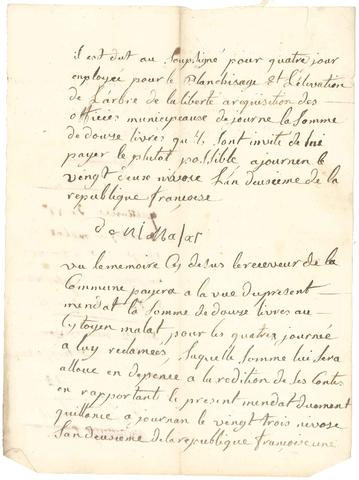 il est dut au souptigné pour quatre jour
employee pour le planchisage et l'elevation
de l'arbre de la liberté a requisition des
officies municypeause de journe la somme
de douze livres qu'ils sont invité de lui
payer le plutot possible a journen le
vingt deuse nivose l'an deusieme de la
republique francoise
vu le memoire Cy desus le receveur de la
Commune payera a la vue du present
mendat la somme de douze livres au
Cytoyen malat pour les quatre journée
a luy reclamées, laquelle somme lui sera
alloue en depence a la redition de ses Contes
en rapportant le present mendat duement
quittancé a journan le vingt trois nivose
l'an deusieme de la republique francoise une